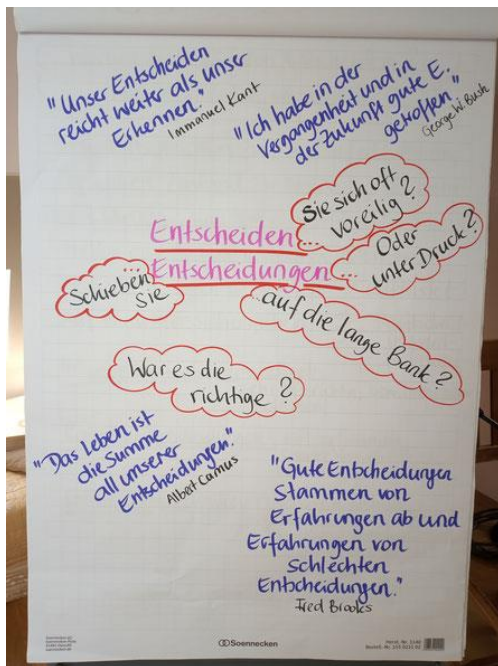 "Unser Entscheiden
reicht weiter als unser
Erkennen."
Immanuel Kant
"Ich habe in der
Vergangenheit und in
der Zukunft gute E.
getroffen."
George W. Bush
Entscheiden...
Sie sich oft
voreilig?
Oder
unter Druck?
Schieben
Sie
...Entscheidungen...
...auf die lange Bank?
War es die
richtige?
"Das Leben ist
die Summe
all unserer
Entscheidungen."
Albert Camus
"Gute Entscheidungen
stammen von
Erfahrungen ab und
Erfahrungen von
schlechten
Entscheidungen."
Fred Brooks
Soennecken